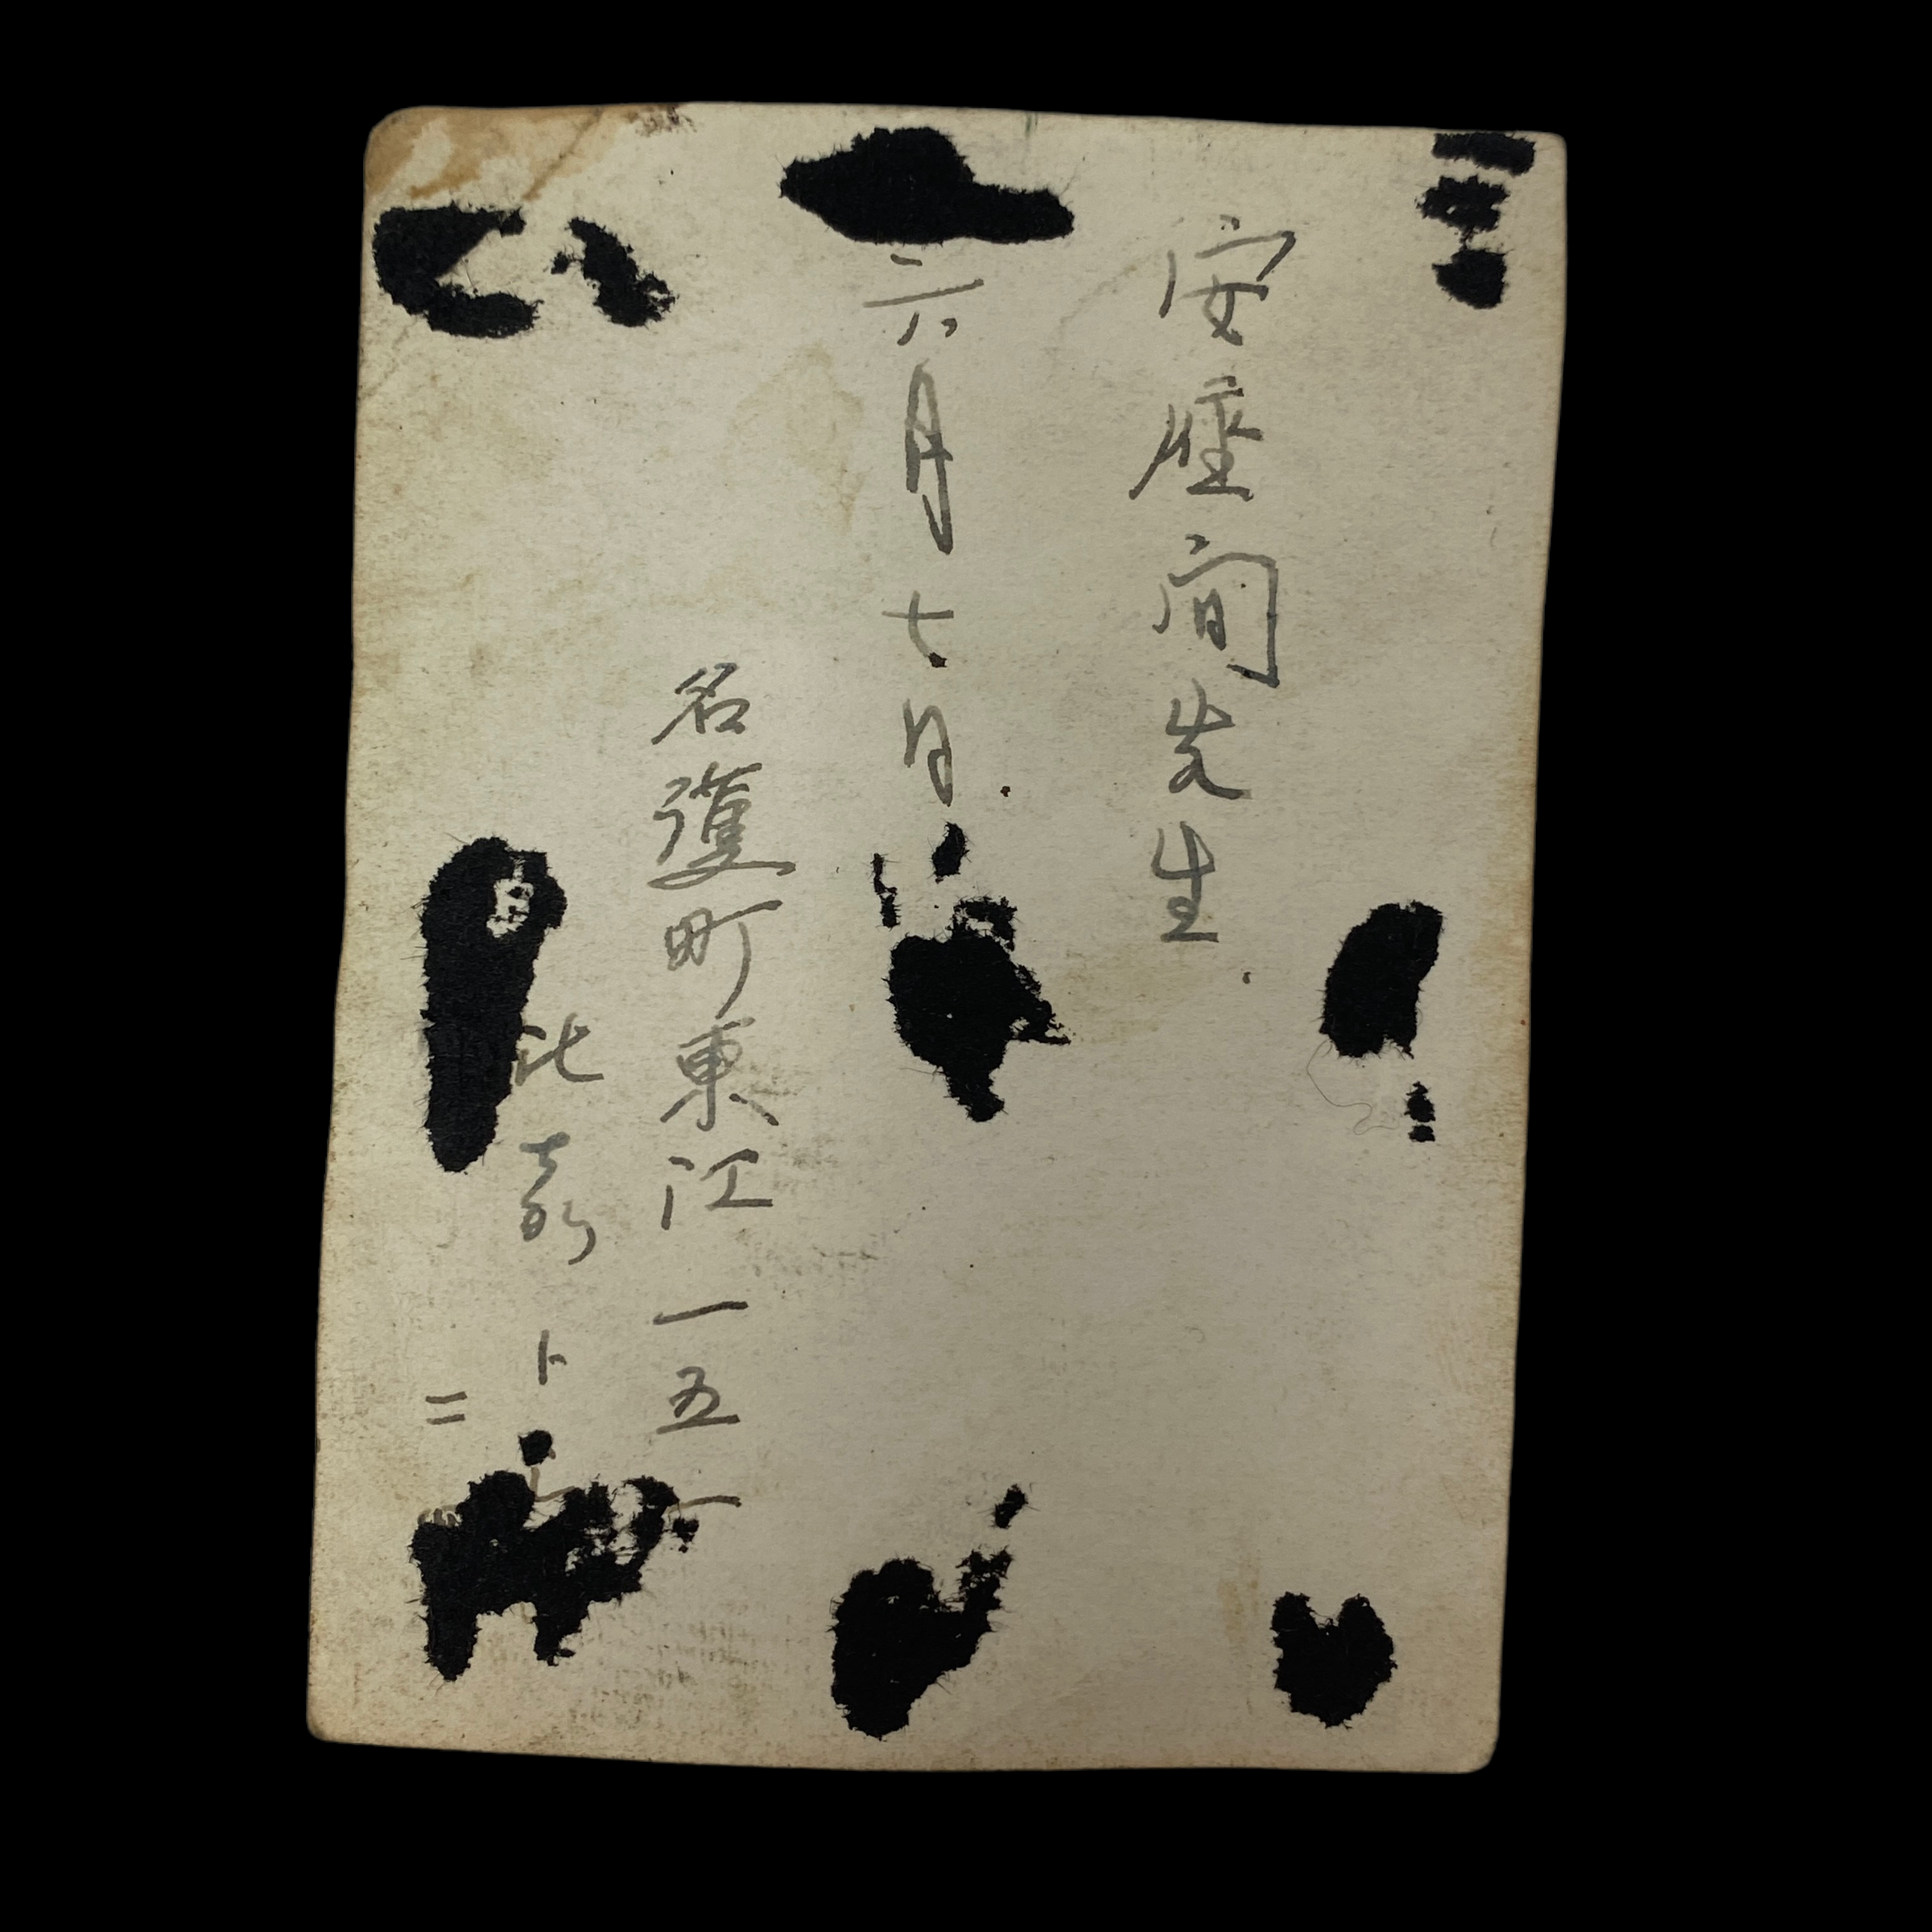 安座間先生
六月七日
名護町東江一五一
比嘉ト
二